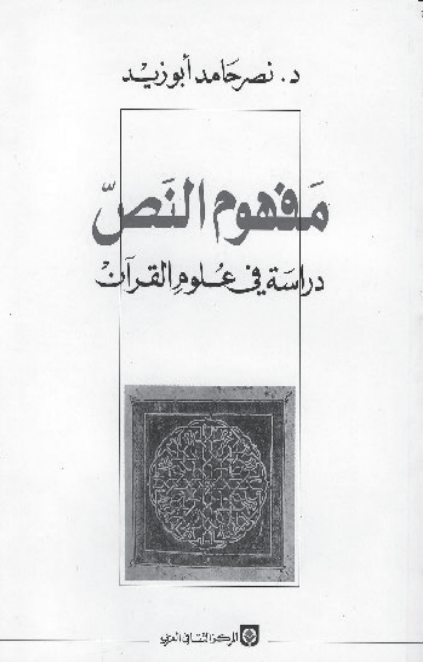 د. نصر حامد أبو زيد
مَفهوم النَصّ
دراسَة في عُلومِ القرآن
المركز الثقافي العربي